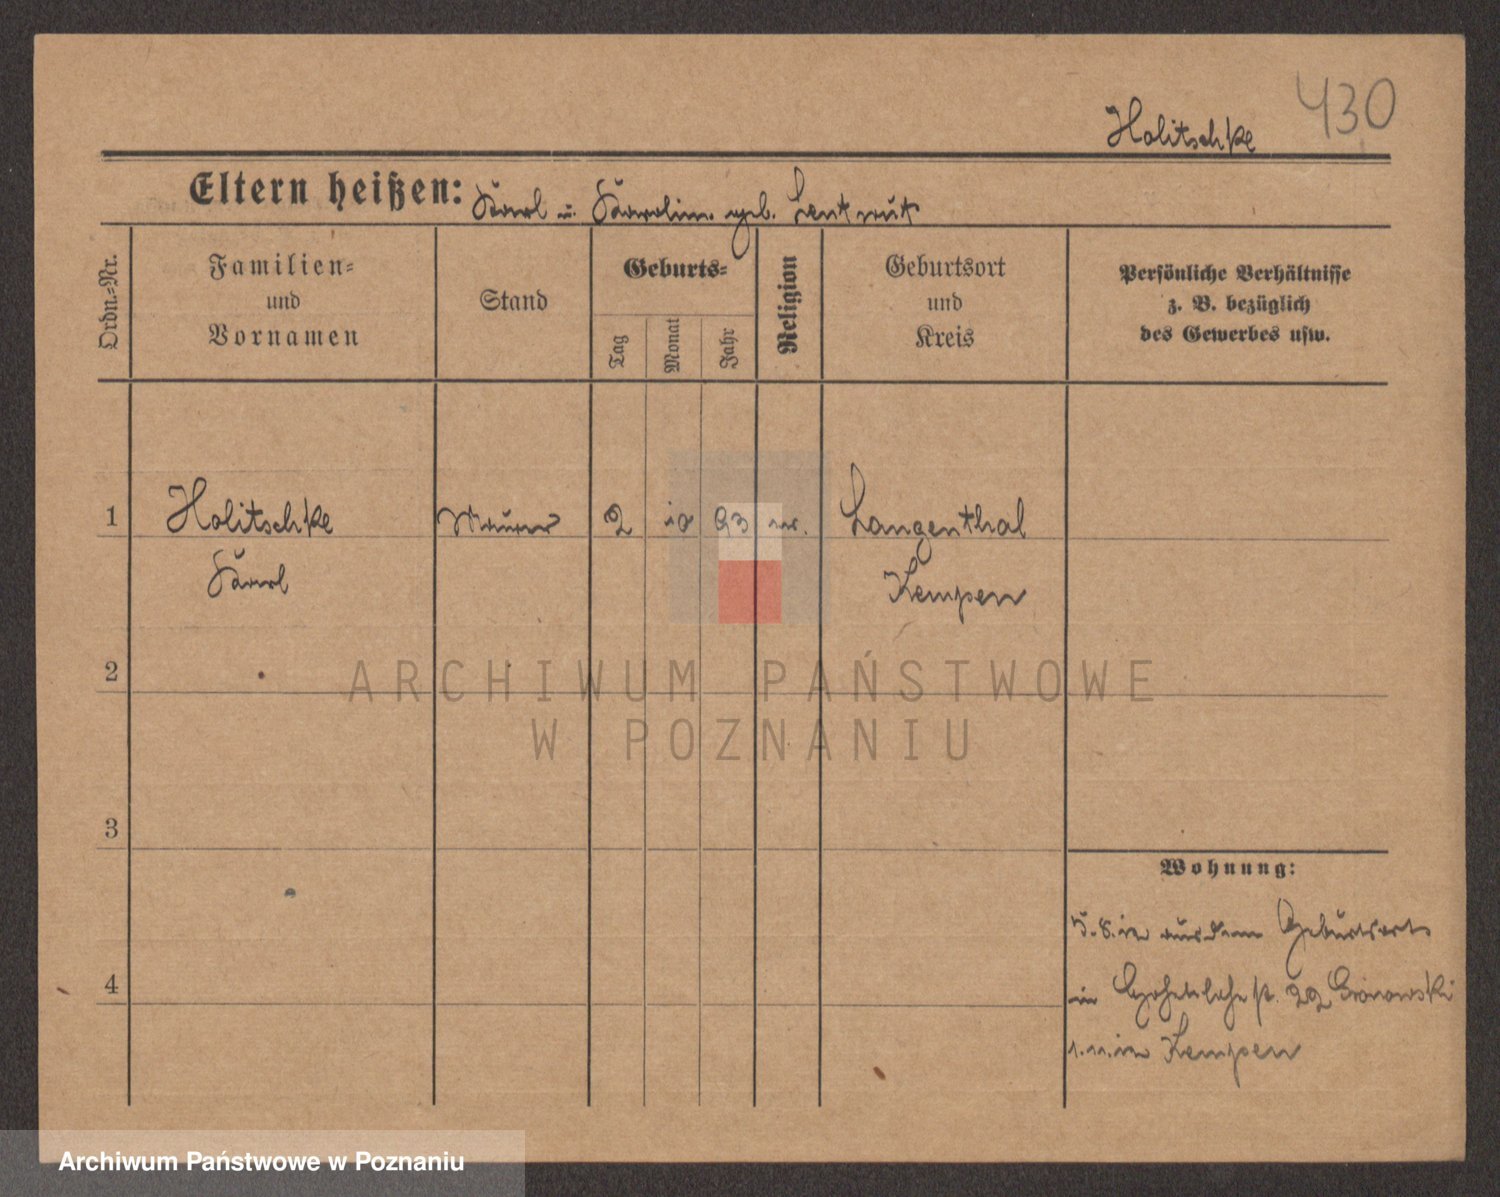 430
Holitschke
Eltern heißen: Karl u. Karolin. geb.
Ordn.-Nr.
Familien-
und
Vornamen
Stand
Geburts-
Tag
Monat
Jahr
Religion
Geburtsort
und
Kreis
Persönliche Verhältnisse
z. B. bezüglich
des Gewerbes usw.
1
Holitschke
Karl
Maurer
2
10
93
Langenthal
Kempen
2
3
4
Wohnung:
5.8. aus dem Geburtsort
in 22 Gronowski
1.11. Kempen
ARCHIWUM PAŃSTWOWE
W POZNANIU
Archiwum Państwowe w Poznaniu